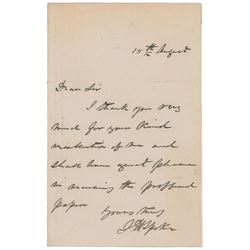 15th August
Dear Sir
I thank you very
much for your kind
mention of me and
shall have great pleasure
in receiving the proffered
paper
Yours truly
J H Speke